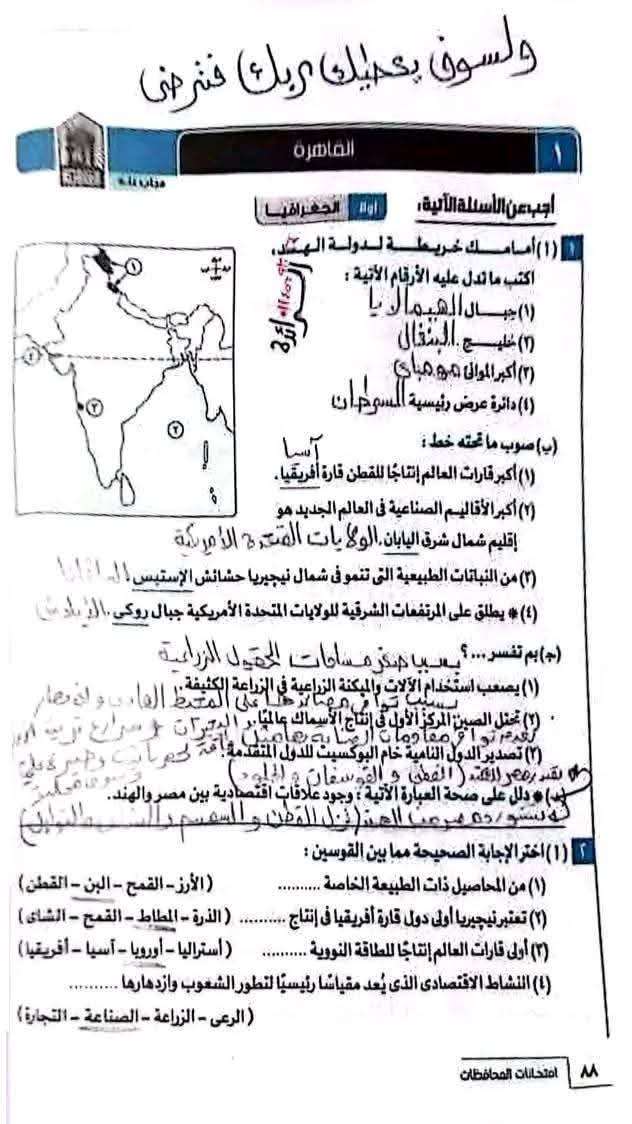 ولسوف يعطيك ربك فترضى
١ القاهرة
مجاب عنه
أجب عن الأسئلة الآتية:
أولا الجغرافيا
١ (أ) أمامك خريطة لدولة الهند،
اكتب ما تدل عليه الأرقام الآتية:
(١) جبال الهيمالايا
(٢) خليج البنغال
(٣) أكبر الموانئ مومباى
(٤) دائرة عرض رئيسية السرطان
١
٤
٣
٢
(ب) صوب ما تحته خط:
(١) أكبر قارات العالم إنتاجًا للقطن قارة أفريقيا. آسيا
(٢) أكبر الأقاليم الصناعية فى العالم الجديد هو
إقليم شمال شرق اليابان. الولايات المتحدة الأمريكية
(٣) من النباتات الطبيعية التى تنمو فى شمال نيجيريا حشائش الإستبس
(٤) * يطلق على المرتفعات الشرقية للولايات المتحدة الأمريكية جبال روكى.
(ج) بم تفسر ...؟ بسبب صغر مساحات الحقول الزراعية
(١) يصعب استخدام الآلات والميكنة الزراعية فى الزراعة الكثيفة.
(٢) تحتل الصين المركز الأول فى إنتاج الأسماك عالميًا.
(٣) تصدير الدول النامية خام البوكسيت للدول المتقدمة.
(القطن و الفوسفات و الجلود)
(د) * دلل على صحة العبارة الآتية: وجود علاقات اقتصادية بين مصر والهند.
(غزل القطن و السمسم و الشاى و التوابل)
٢ (أ) اختر الإجابة الصحيحة مما بين القوسين:
(١) من المحاصيل ذات الطبيعة الخاصة .......... (الأرز - القمح - البن - القطن)
(٢) تعتبر نيجيريا أولى دول قارة أفريقيا فى إنتاج .......... (الذرة - المطاط - القمح - الشاى)
(٣) أولى قارات العالم إنتاجًا للطاقة النووية .......... (أستراليا - أوروبا - آسيا - أفريقيا)
(٤) النشاط الاقتصادى الذى يُعد مقياسًا رئيسيًا لتطور الشعوب وازدهارها ..........
(الرعى - الزراعة - الصناعة - التجارة)
٨٨ امتحانات المحافظات